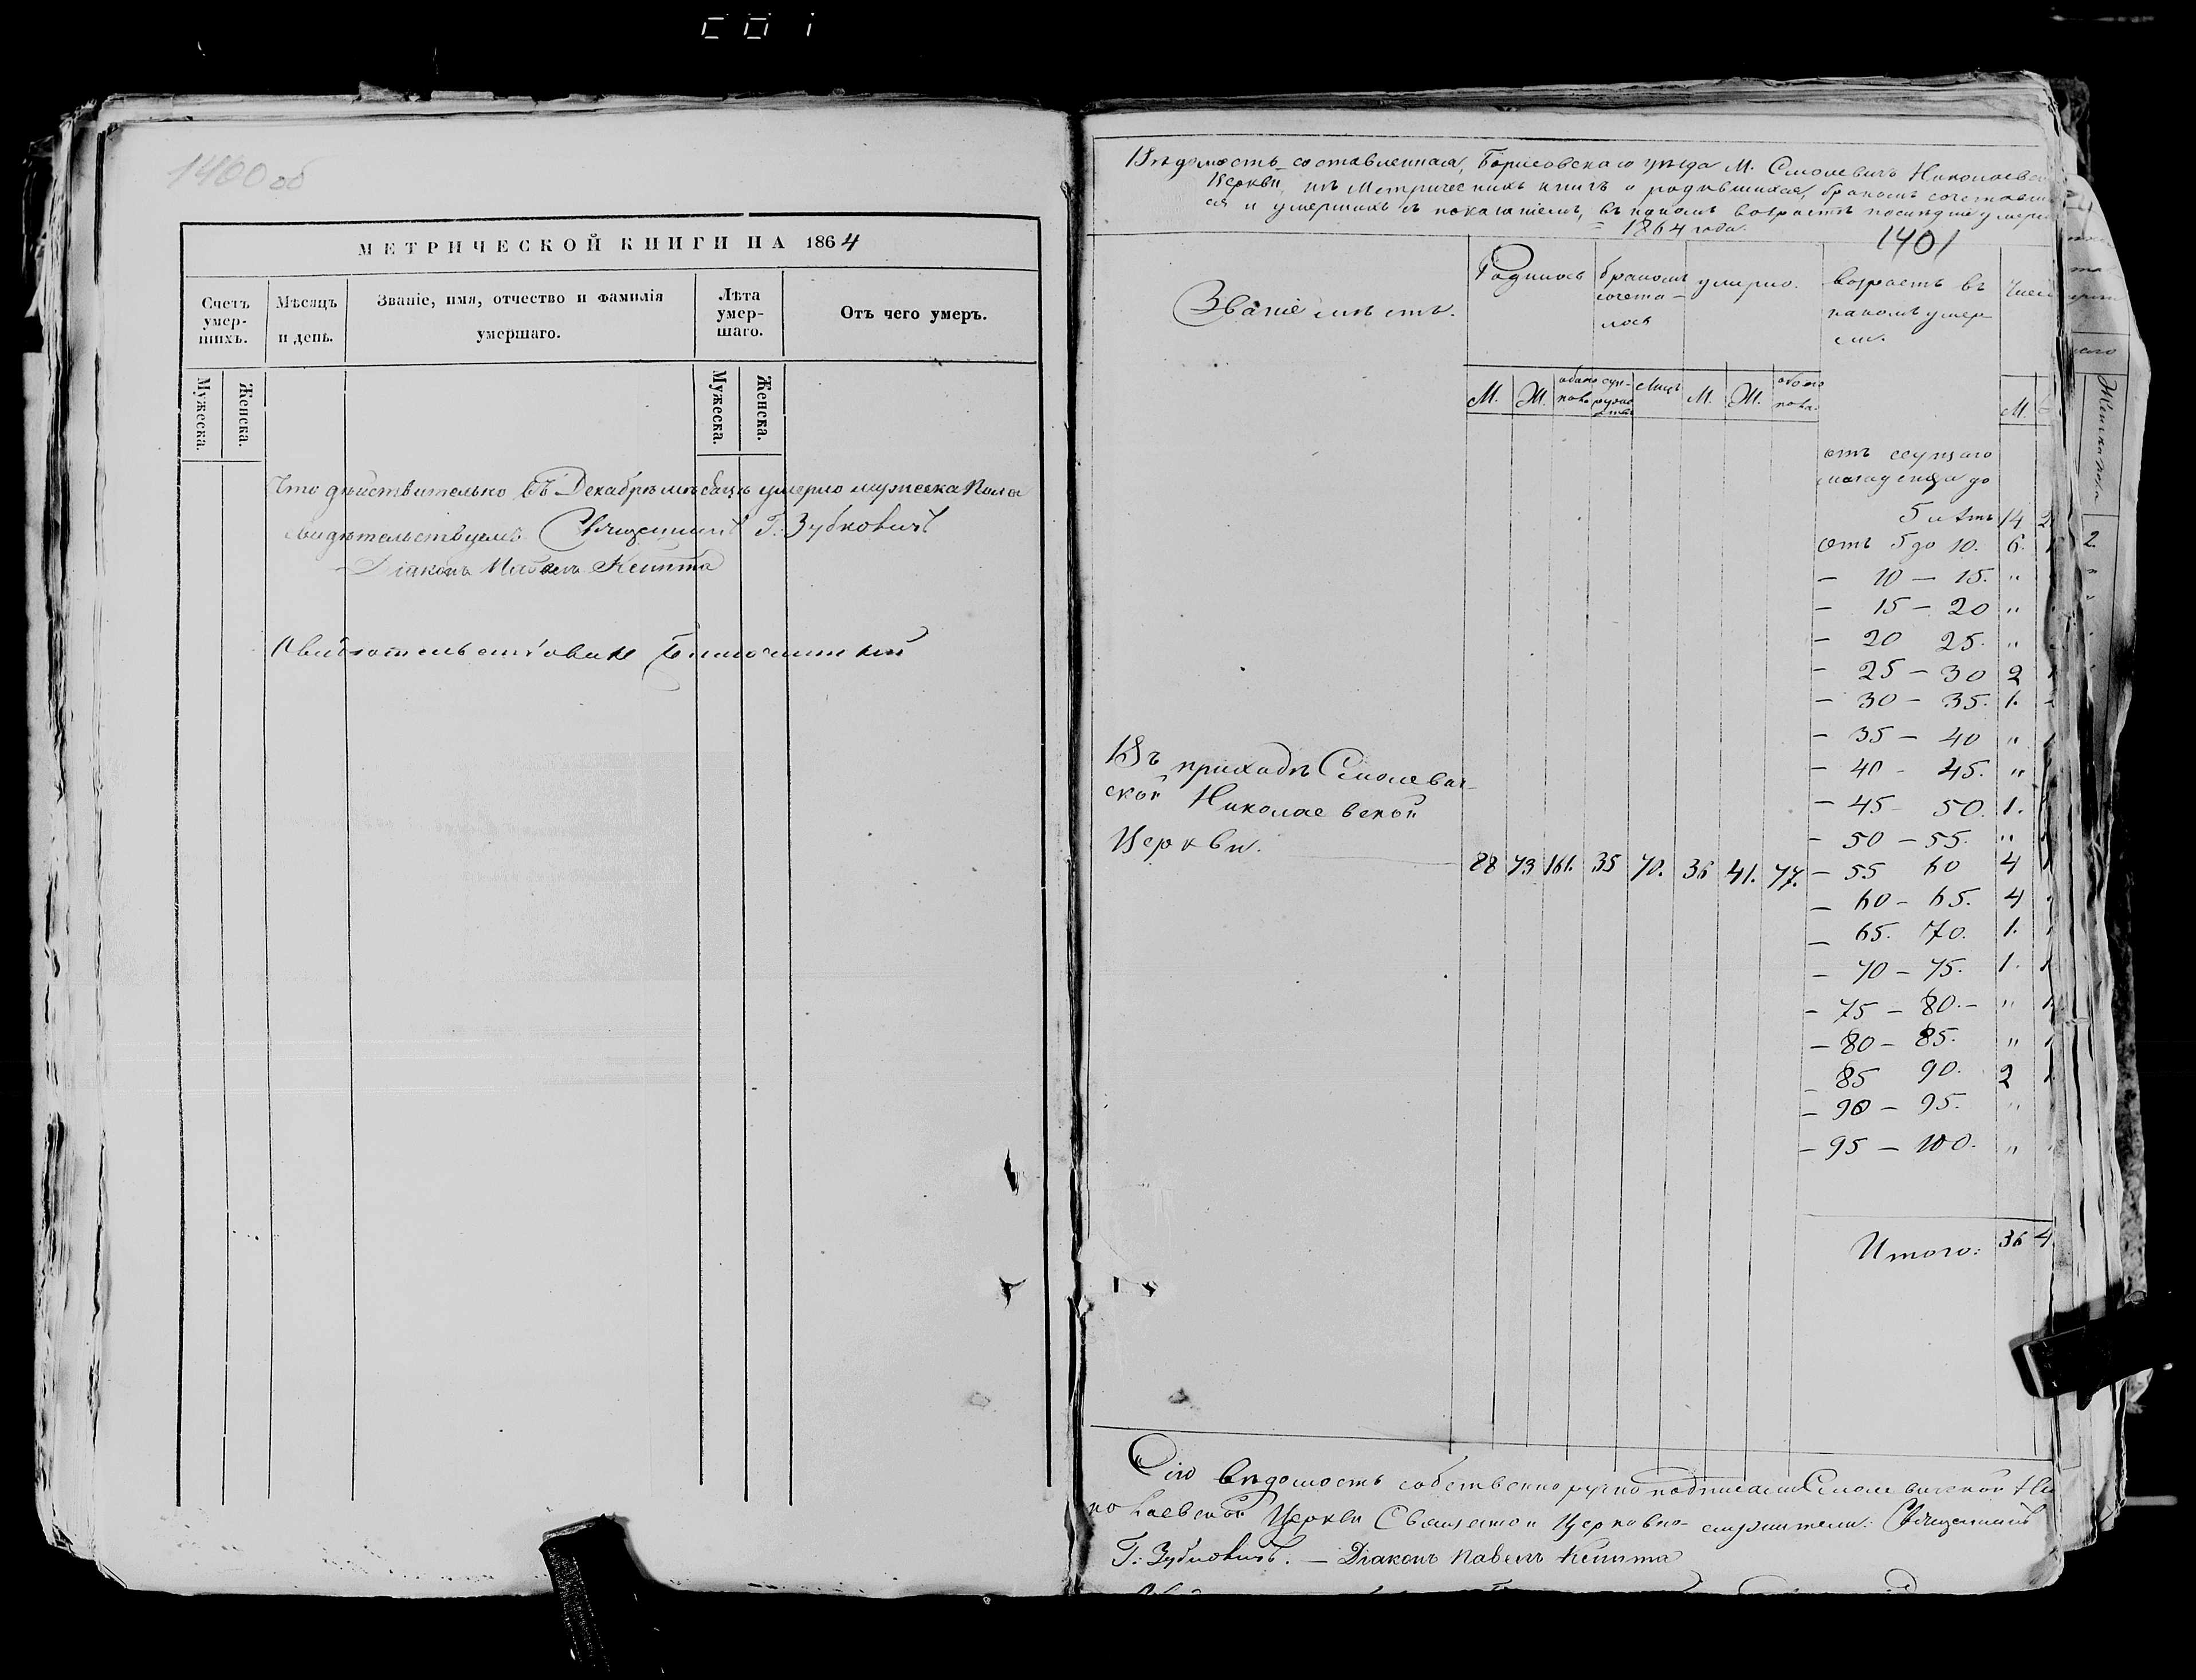 1400 об
МЕТРИЧЕСКОЙ КНИГИ НА 1864
Счетъ умер-шихъ.
Мѣсяцъ и день.
Званіе, имя, отчество и фамилія умершаго.
Лѣта умер-шаго.
Отъ чего умеръ.
Мужеска.
Женска.
Мужеска.
Женска.
Что дѣйствительно въ Декабрѣ мѣсяцѣ умерло мужеска пола
свидѣтельствуемъ Священникъ Г: Зубковичъ
Діаконъ Павелъ
Вѣдомость составленная, Борисовскаго уѣзда М. Смолевичъ Николаевс
Церкви, изъ Метрическихъ книгъ о родившихся, бракомъ сочетавш
ся и умершихъ съ показаніемъ, въ какомъ возрастѣ послѣдніе умерл
1864 года.
1401
Званіе мѣстъ.
Родилось
бракомъ сочета-лось
умерло.
возрастъ въ какомъ умер-ли.
Число
М. Ж. обоего пола суп-ружествъ Лицъ М. Ж. обоего пола. М
отъ сущаго
младенца до
5 лѣтъ 14 2
отъ 5 до 10. 6.
— 10 — 15. "
— 15 — 20 "
— 20 25. "
— 25 — 30 2
— 30 — 35. 1.
— 35 — 40 "
— 40 - 45. "
— 45 - 50. 1.
— 50 — 55. "
Въ приходѣ Смолевич-
ской Николаевской
Церкви.
88 73 161. 35 70. 36 41. 77. — 55 60 4
— 60 — 65. 4
— 65. 70. 1.
— 70 — 75. 1.
— 75 — 80. — "
— 80 — 85. "
— 85 90. 2
— 90 — 95. "
— 95 — 100. "
Итого: 36 4
Сію вѣдомость собственноручно подписали Смолевичской Ни
колаевской Церкви Священно и Церковно-служители: Священникъ
Г: Зубковичъ. — Діаконъ Павелъ
Женска пола
2.